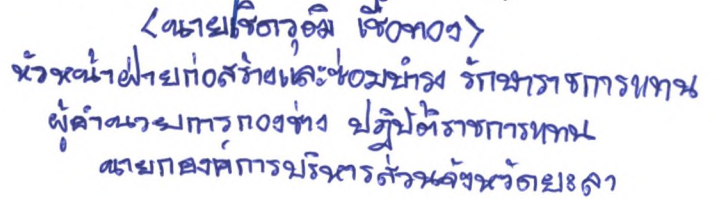 (นายโชติวุฒิ เชื้อทอง)
หัวหน้าฝ่ายก่อสร้างและซ่อมบำรุง รักษาราชการแทน
ผู้อำนวยการกองช่าง ปฏิบัติราชการแทน
นายกองค์การบริหารส่วนจังหวัดยะลา